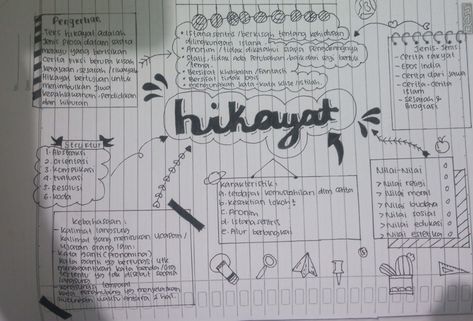 hikayat
Pengertian
Teks hikayat adalah
jenis prosa dalam sastra
melayu yang berisikan
cerita fiksi berupa kisah,
kerajaan, sejarah / riwayat
Hikayat bertujuan untuk
menimbulkan jiwa
kepahlawanan, pendidikan
dan hiburan
• Istana sentris / berkisah tentang kehidupan
dilingkungan istana
• Anonim / tidak diketahui siapa pengarangnya
• Statis, tidak ada perubahan baik dari segi bentuk
/ tema.
• Bersifat khayalan / fantasi
• Bersifat tidak logis
• menggunakan kata-kata klise istilah.
Jenis-Jenis
- Cerita rakyat
- Epos India
- Cerita dari Jawa
- Cerita-cerita
islam
- sejarah &
Biografi
Struktur
1. Abstraksi
2. orientasi
3. komplikasi
4. Evaluasi
5. Resolusi
6. koda
karakteristik :
a. terdapat kemustahilan dlm cerita
b. kesaktian tokoh2
c. Anonim
d. Istana sentris
e. Alur berbingkai
Nilai-Nilai
> Nilai religi
> Nilai moral
> Nilai budaya
> Nilai sosial
> Nilai edukasi
> Nilai estetika
kebahasaan :
- kalimat langsung
kalimat yang menirukan ucapan /
ujaran orang lain.
- kata ganti (pronomina)
kata ganti yg berfungsi utk
menggantikan kata benda / org
tertentu yg tdk disebut secara
langsung
- konjungsi temporal
kata penghubung yg menjelaskan
hubungan waktu antara 2 hal.